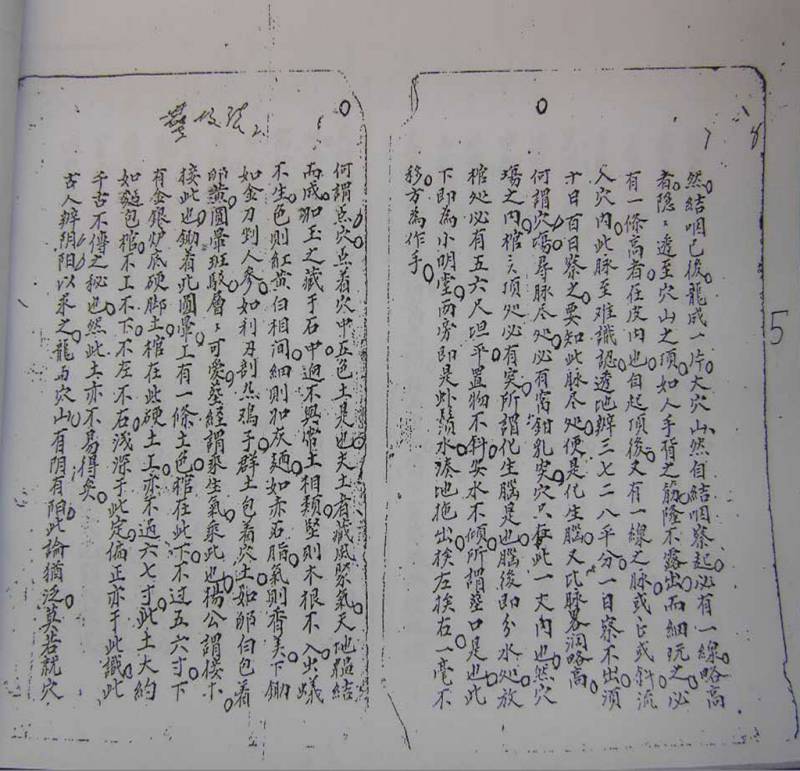 然結咽已後龍成一片大穴山然自結咽察起必有一線略高
者隐〻透至穴山之頂如人手背之筋隆不露出而細玩之必
有一條高者在皮内也自起頂後又有一線之脉或正或斜流
入穴内此脉至难識認透地辨三七二八平分一日察不出須
十日百日察之要知此脉尽处便是化生腦又比脉畧濶略高
何謂穴塲尋脉尽处必有窩鉗乳突穴只在此一丈内也然穴
塲之内棺之頂处必有突所謂化生腦是也腦後即分水处放
棺处必有五六尺坦平置物不斜安水不傾所謂塟口是也此
下即為小明堂两旁即是虾鬚水凑地拖出挨左挨右一毫不
移方為作手
塟 法
何謂点穴点着穴中五色土是也夫土者藏風聚氣天地結
而成如玉之藏于石中迥不與常土相類堅則木根不入虫蟻
不生色則紅黄白相间細則如灰麺如赤石脂氣則香美下鋤
如金刀剖人參如利刃剖熟鴉子群土包着穴土如卵白包着
卵黄圓暈班駁層〻可愛塟經謂乘生氣乘此也楊公謂接木
接此也鋤着此圓暈上有一條土色棺在此下不过五六寸下
有金銀炉底硬脚土棺在此硬土上亦不過六七寸此土大約
如包棺不上不下不左不右浅深于此定偏正亦于此識此
千古不傳之秘也然此土亦不易得矣
古人辨阴阳以乘之龍与穴山有阴有阳此論猶泛莫若就穴
5